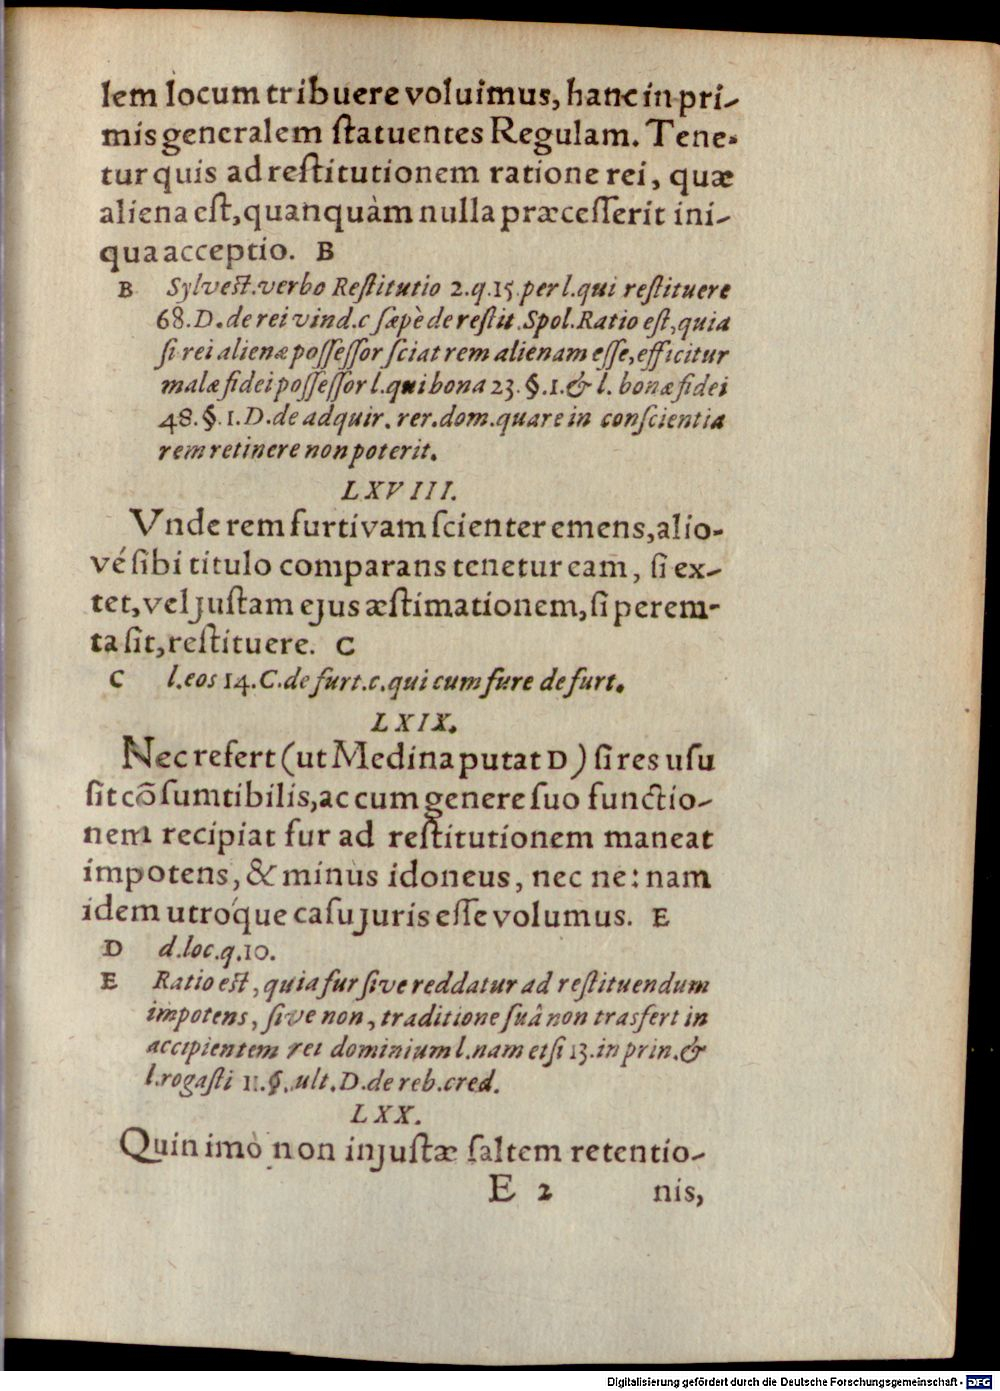 lem locum tribuere voluimus, hanc in pri-
mis generalem ſtatuentes Regulam. Tene-
tur quis ad reſtitutionem ratione rei, quæ
aliena eſt, quanquàm nulla præceſſerit ini-
qua acceptio. B
B Sylveſt. verbo Reſtitutio 2. q. 15. per l. qui reſtituere
68. D. de rei vind. c ſæpè de reſtit. Spol. Ratio eſt, quia
ſi rei alienæ poſſeſſor ſciat rem alienam eſſe, efficitur
malæ fidei poſſeſſor l. qui bona 23. §. 1. & l. bonæ fidei
48. §. 1. D. de adquir. rer. dom. quare in conſcientia
rem retinere non poterit.
LXVIII.
Vnde rem furtivam ſcienter emens, alio-
vé ſibi titulo comparans tenetur eam, ſi ex-
tet, vel juſtam ejus æſtimationem, ſi perem-
ta ſit, reſtituere. C
C l. eos 14. C. de furt. c. qui cum fure de furt.
LXIX.
Nec refert (ut Medina putat D) ſi res uſu
ſit cõſumtibilis, ac cum genere ſuo functio-
nem recipiat fur ad reſtitutionem maneat
impotens, & minùs idoneus, nec ne: nam
idem utróque caſu juris eſſe volumus. E
D d. loc. q. 10.
E Ratio eſt, quia fur ſive reddatur ad reſtituendum
impotens, ſive non, traditione ſuâ non trasfert in
accipientem rei dominium l. nam etſi 13. in prin. &
l. rogaſti 11. §. ult. D. de reb. cred.
LXX.
Quin imò non injuſtæ ſaltem retentio-
E 2 nis,
Digitalisierung gefördert durch die Deutsche Forschungsgemeinschaft - DFG